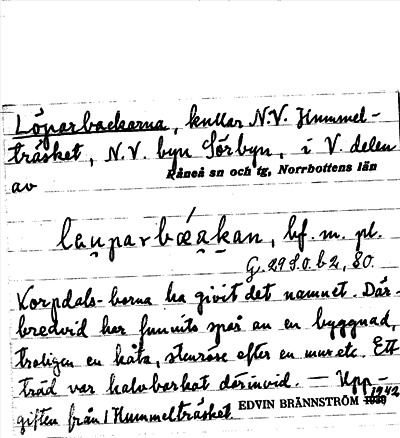 Löparbackarna, kullar N.V. Hummel-
träsket, N.V. byn Sörbyn, i V. delen
av Råneå sn och tg, Norrbottens län
lau̯parbǽa̯kan, bf. m. pl.
G. 29 S.O. b 2, 80.
Korpdals-borna ha givit det namnet. Där-
bredvid har funnits spår av en byggnad,
troligen en kåta, stenröse efter en mur etc. Ett
träd var halvbarkat därinvid. — Upp-
giften från Hummelträsket EDVIN BRÄNNSTRÖM 1942